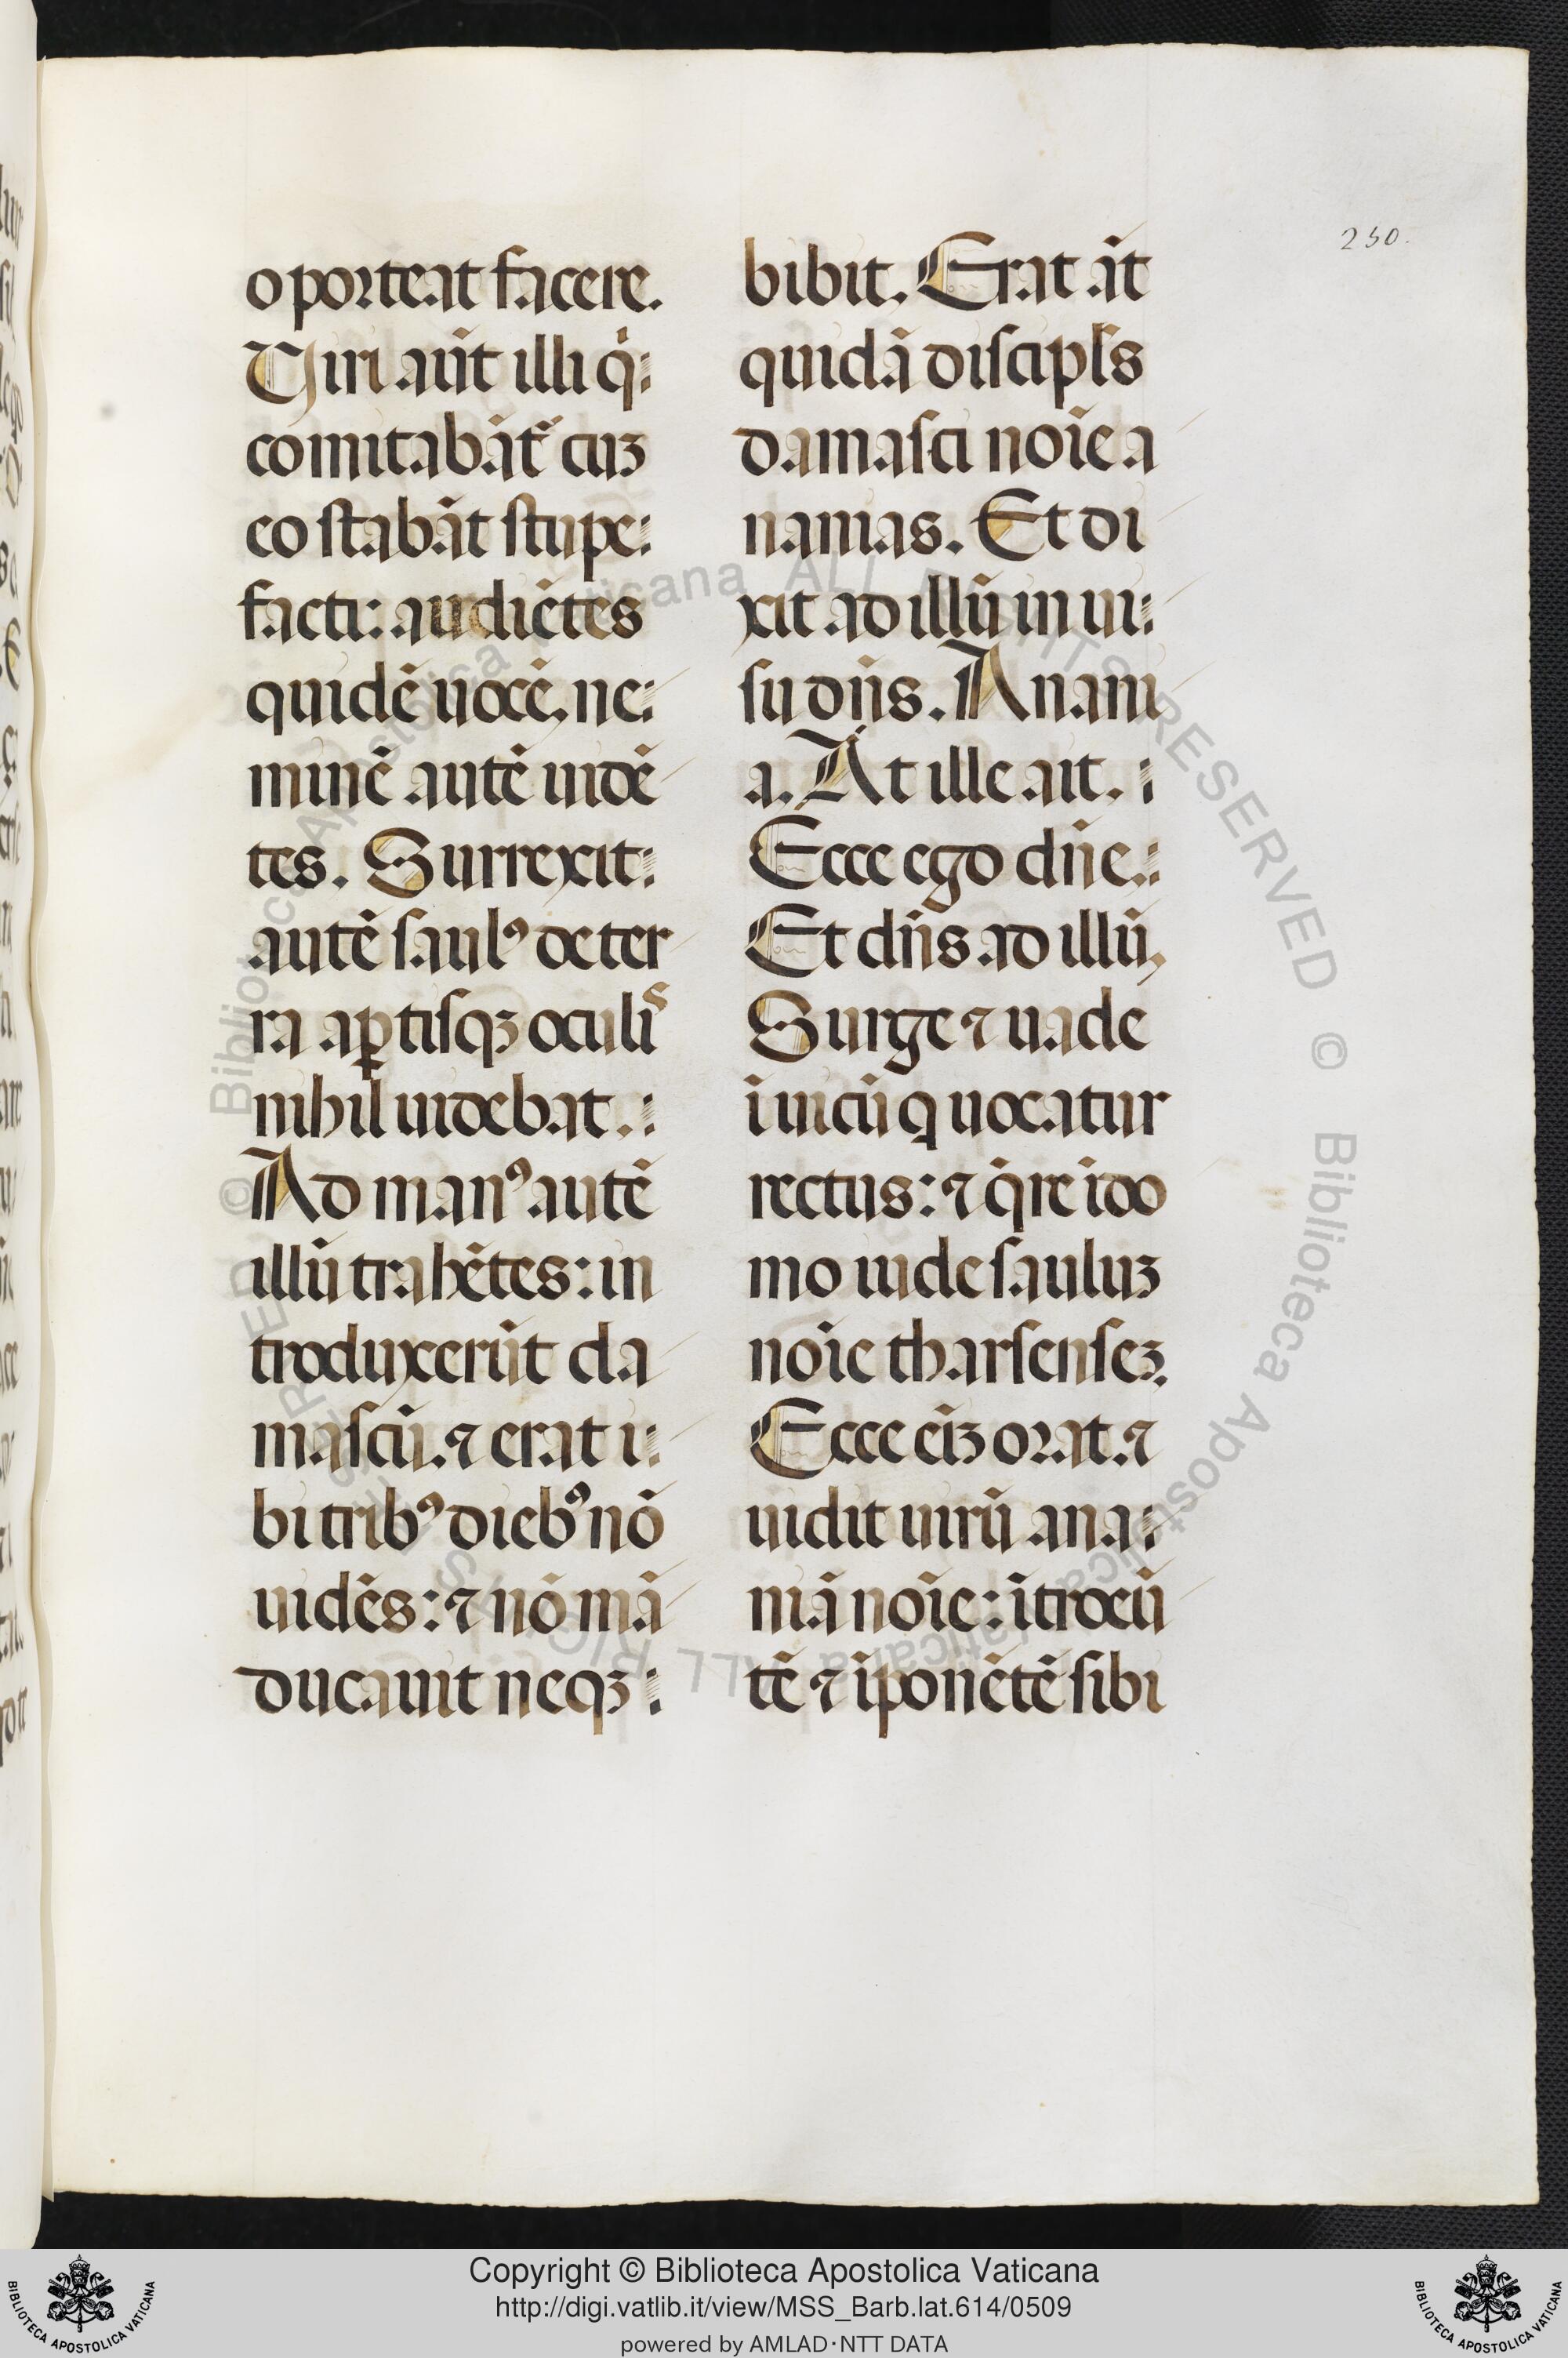 250.
oporteat facere.
Uiri aut̄ illi qͥ:
comitabāt᷑ cuꝫ
eo stabāt stupe:
facti: audiētes
quidē uocē, ne:
minē autē uidē
tes. Surrexit:
autē saulꝰ de ter
ra aꝑtisqꝫ oculis
nihil uidebat.:
Ad manꝰ autē
illū trahētes: in
troduxerūt da
mascū. ⁊ erat i:
bi tribꝰ diebꝰ nō
uidēs: ⁊ nō mā
ducauit neqꝫ:
bibit. Erat āt
quidā discipl̄s
damasci noīe a
nanias. Et di
xit ad illū in ui:
su dn̄s. Anani
a. At ille ait.:
Ecce ego dn̄e.:
Et dn̄s ad illū,
Surge ⁊ uade
ī uicū q uocatur
rectus: ⁊ q̄re ī do
mo iude sauluꝫ
noīe tharsenseꝫ.
Ecce eīꝫ orat. ⁊
uidit uirū ana:
niā noīe: ītroeū
tē ⁊ īponētē sibi
Copyright © Biblioteca Apostolica Vaticana
http://digi.vatlib.it/view/MSS_Barb.lat.614/0509
powered by AMLAD·NTT DATA
BIBLIOTECA APOSTOLICA VATICANA
BIBLIOTECA APOSTOLICA VATICANA
© Biblioteca Apostolica Vaticana ALL RIGHTS RESERVED © Biblioteca Apostolica Vaticana ALL RIGHTS RESERVED